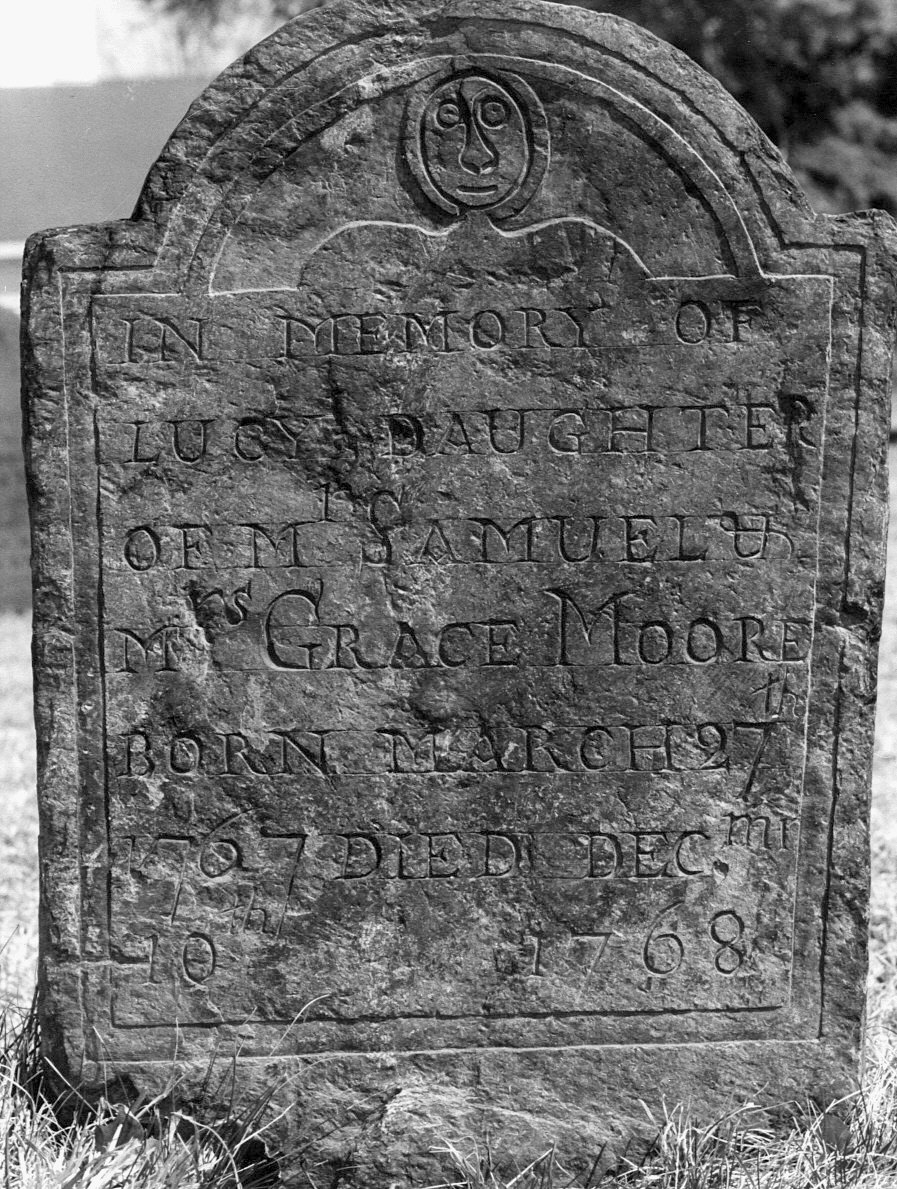 IN MEMORY OF
LUCY DAUGHTER
OF Mr SAMUEL &
Mrs GRACE MOORE
BORN MARCH 27th
1767 DIED DECmr
10th 1768